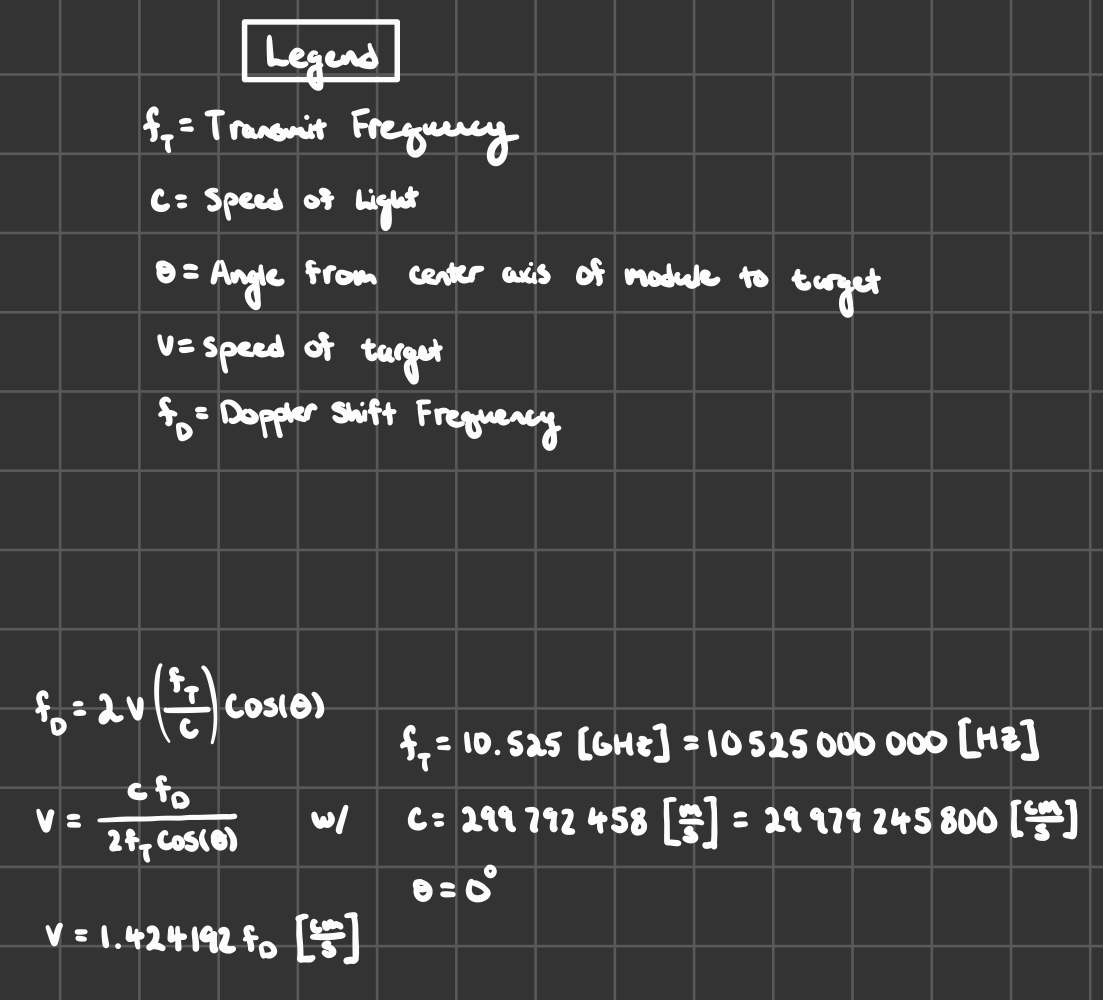 Legend
f_T = Transmit Frequency
C = Speed of Light
θ = Angle from center axis of module to target
V = Speed of target
f_D = Doppler Shift Frequency
f_D = 2V(f_T/C)Cos(θ)
f_T = 10.525 [GHz] = 10 525 000 000 [Hz]
V = C f_D / 2f_T Cos(θ) w/ C = 299 792 458 [m/s] = 29 979 245 800 [cm/s]
θ = 0°
V = 1.424192 f_D [cm/s]